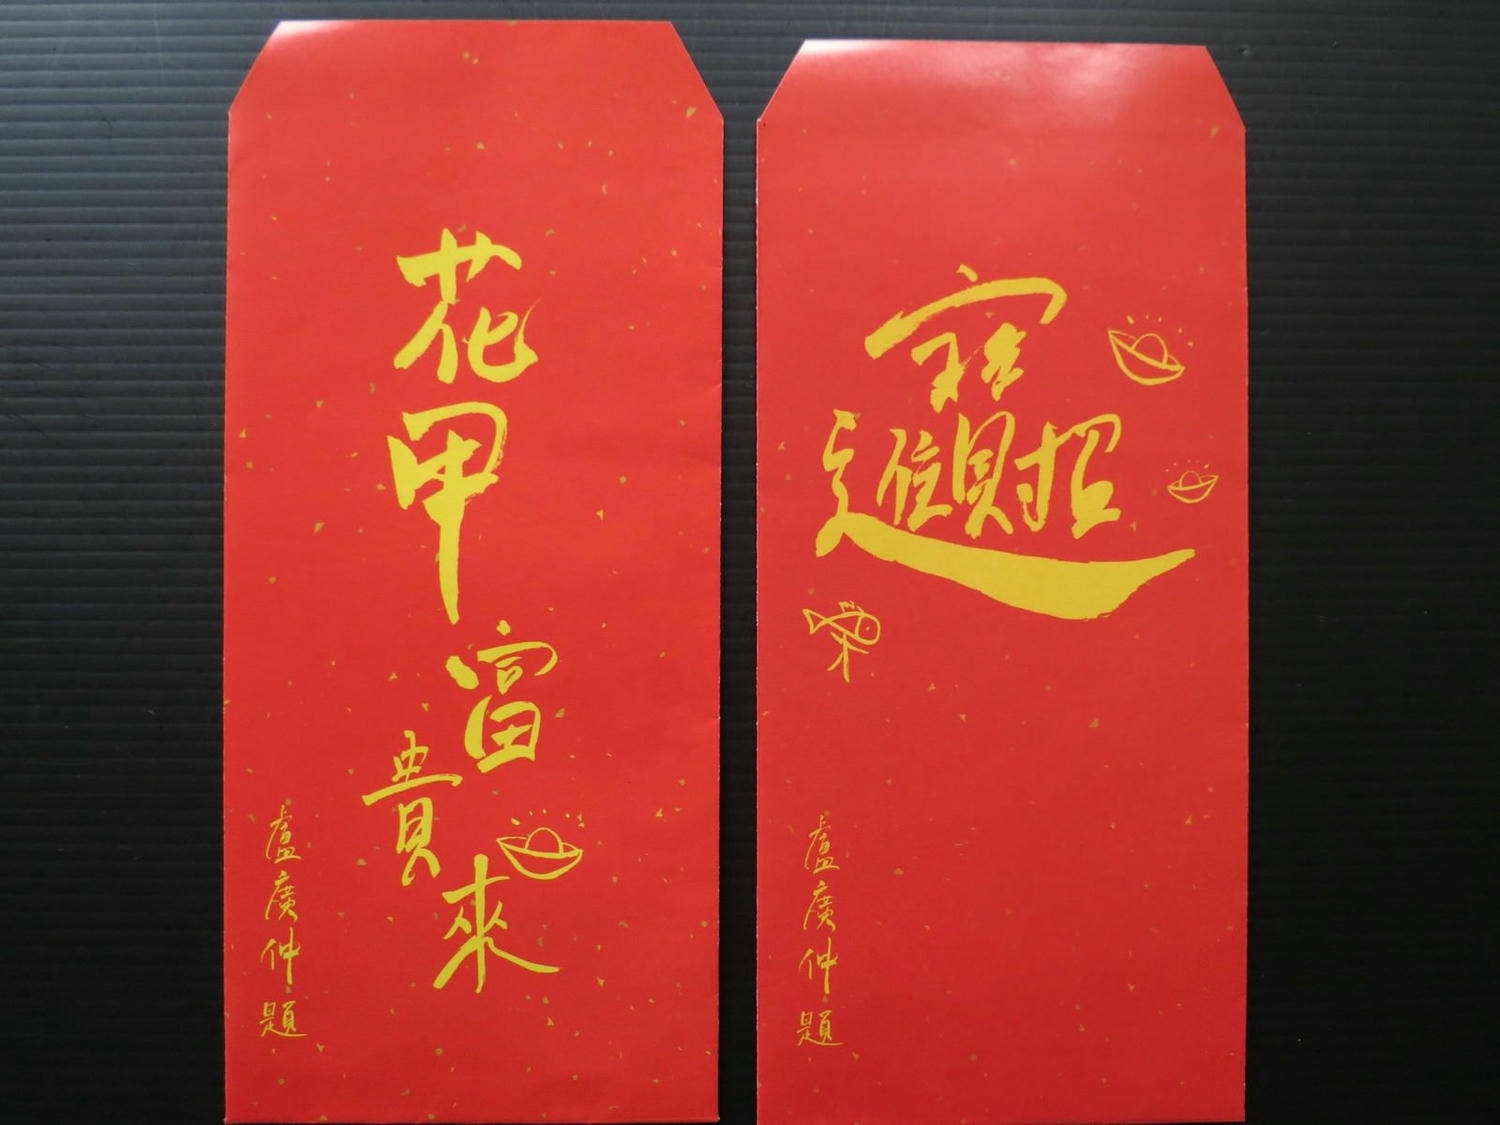 花甲富貴來
盧廣仲題
招財進寶
盧廣仲題